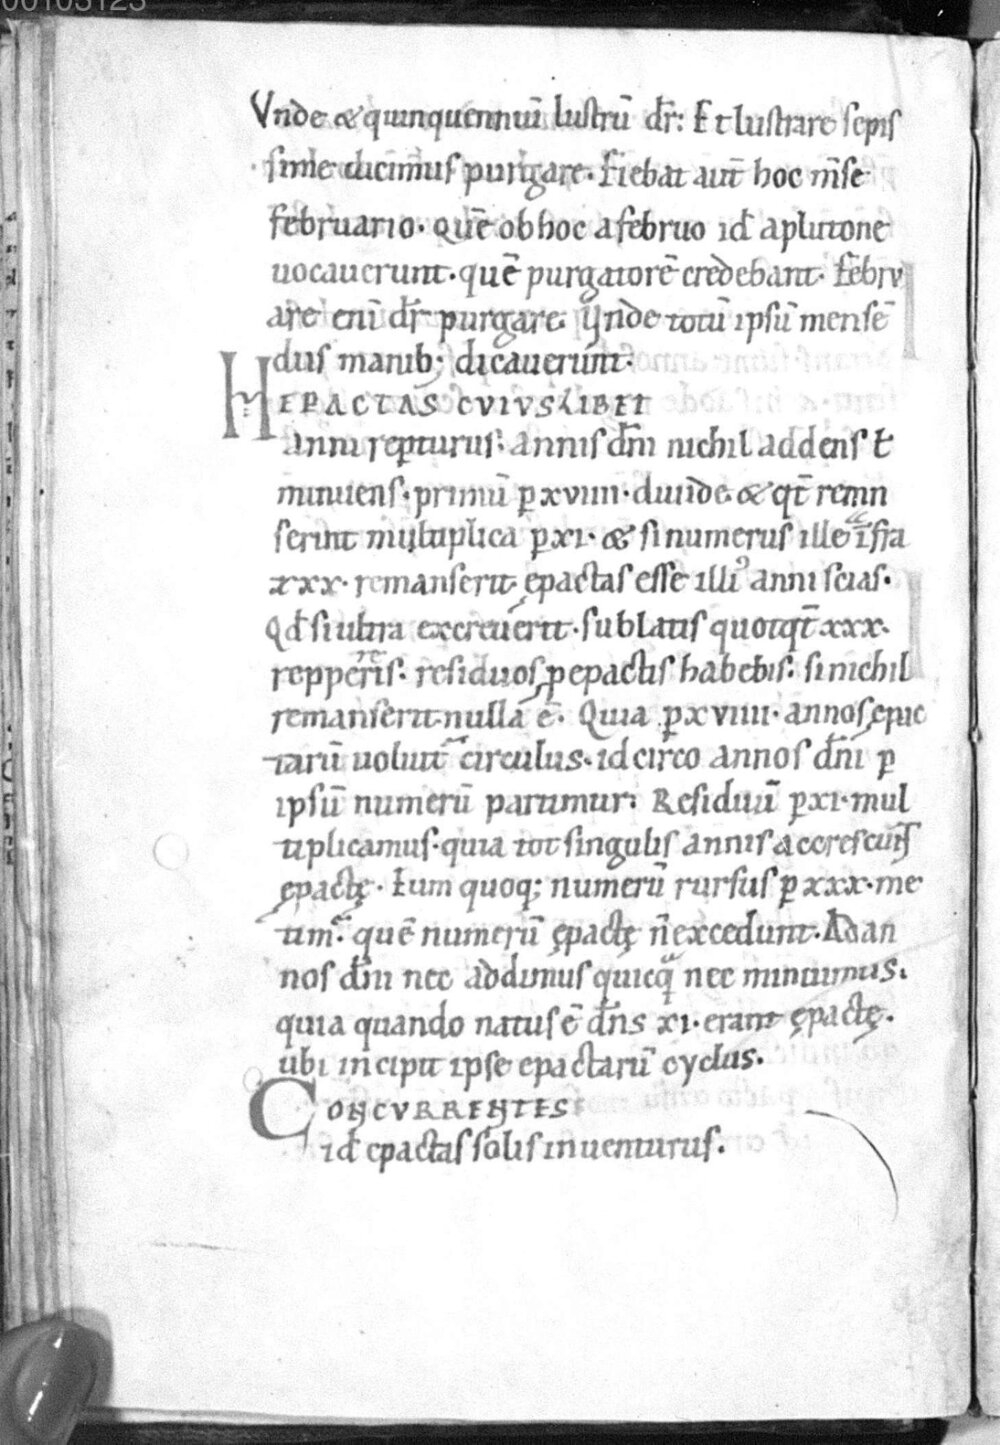 00103123
Vnde & quinquenniū lustrū dr̄: Et lustrare sepis
sime dicimus purgare. Fiebat aut̄ hoc m̄se
februario. quē ob hoc a februo id̄ a plutone
uocauerunt. quē purgatorē credebant. Febru
are eni dr̄ purgare. Vnde totū ipsū mensē
diis manib; dicauerunt.
HEPACTAS CVIVSLIBET
anni repturus. annis dn̄i nichil addens ł
minuens. primū ꝑ xviiii. diuide. & qt̄ reman
serint multiplica ꝑ xi. & si numerus ille īfra
xxx. remanserit. ępactas esse illiꝰ anni scias.
Qd̄ si ultra excreuerit. sublatis quotqt̄ xxx.
reppereris. residuos ꝑ epactis habebis. si nichil
remanserit. nulla ē. Quia ꝑ xviiii. annos ępac
tarū uoluit̄ circulus. idcirco annos dn̄i ꝑ
ipsū numerū partimur. Residuū ꝑ xi. mul
tiplicamus. quia tot singulis annis accrescunt
ępactę. Eum quoq; numerū rursus ꝑ xxx. me
tim̄. quē numerū ępactę n̄ excedunt. Ad an
nos dn̄i nec addimus quicq̄ nec minuimus.
quia quando natus ē dn̄s xi. erant ępactę.
ubi incipit ipse epactarū cyclus.
CONCVRRENTES
id̄ epactas solis inuenturus.